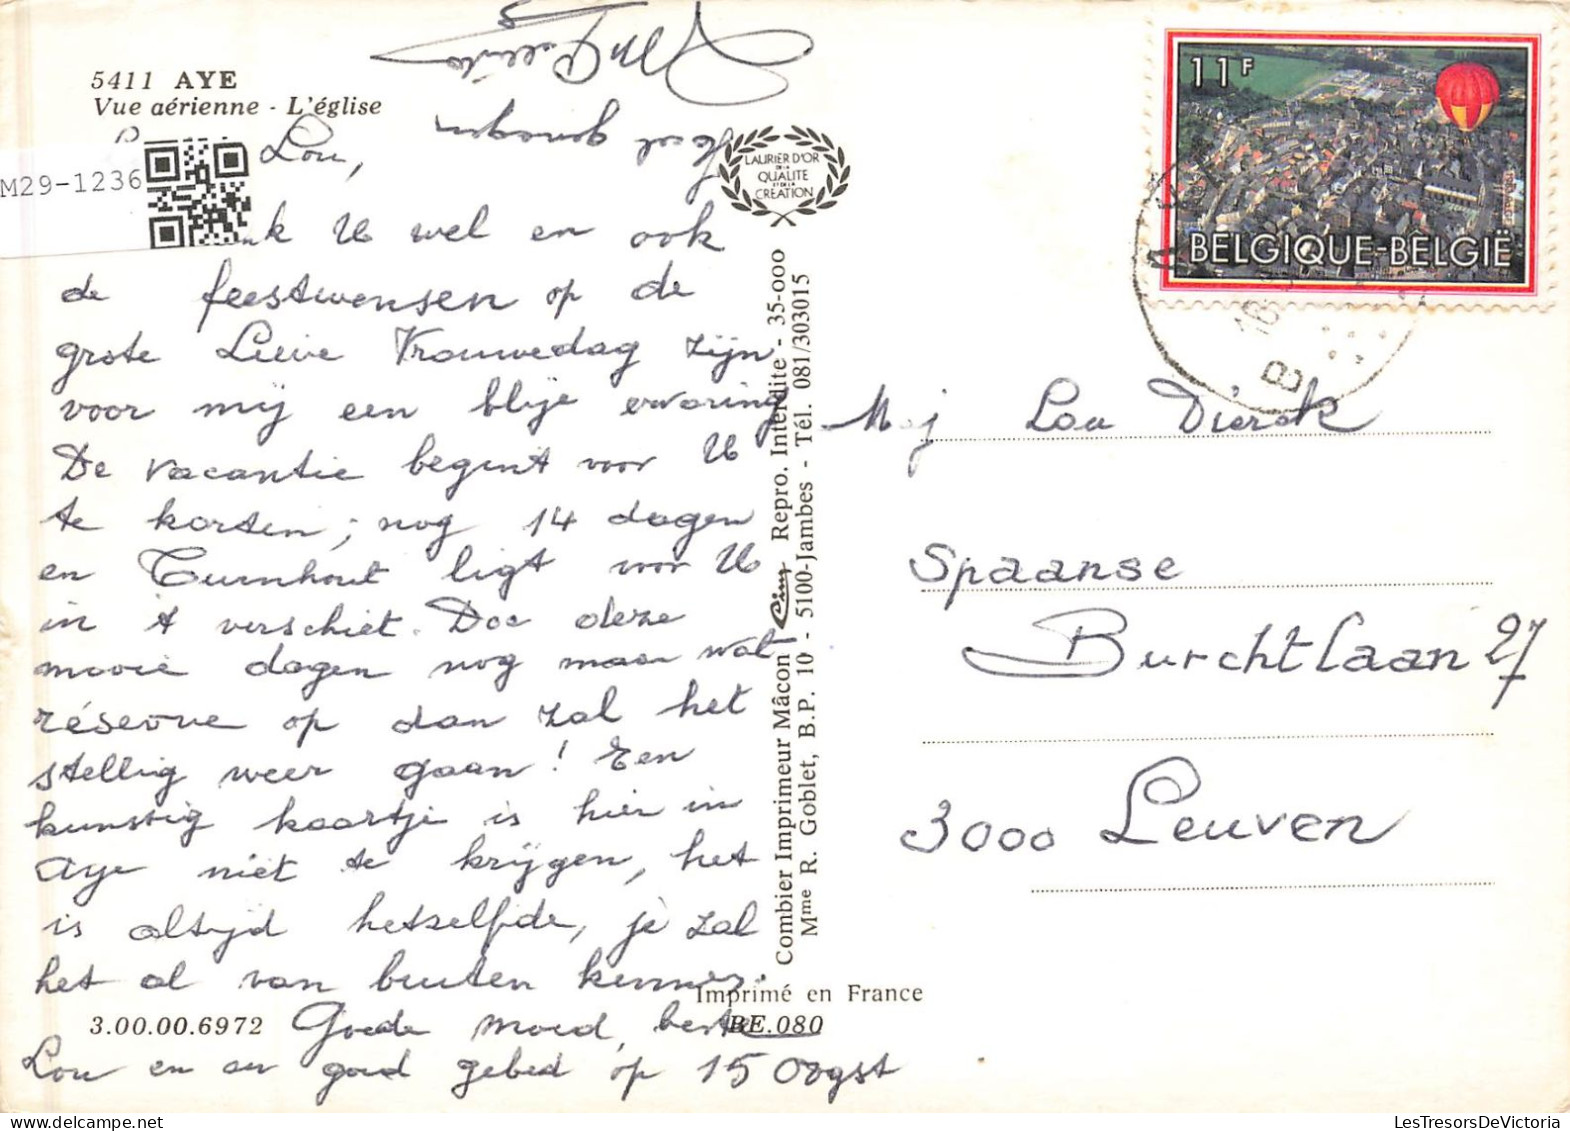 5411 AYE
Vue aérienne - L'église
M29-1236
Lou,
U wel en ook
de feestwensen op de
grote Lieve Vrouwedag zijn
voor mij een blije ervaring
De vacantie begint voor U
te korten; nog 14 dagen
en Turnhout ligt voor U
in 't verschiet. Doe deze
mooie dagen nog maar wat
réserve op dan zal het
stellig weer gaan! Een
kunstig kaartje is hier in
Aye niet te krijgen, het
is altijd hetzelfde, je zal
het al van buiten kennen.
Goede moed, beste
Lou en een goed gebed op 15 Oogst
3.00.00.6972
Imprimé en France
BE.080
LAURIER D'OR
DE LA
QUALITE
ET DE LA
CREATION
Combier Imprimeur Mâcon Cim Repro. Interdite - 35-000
Mme R. Goblet, B.P. 10 - 5100-Jambes - Tél. 081/303015
11F
BELGIQUE-BELGIË
B
Mej Lou Dierck
Spaanse
Burchtlaan 27
3000 Leuven
LesTresorsDeVictoria.com